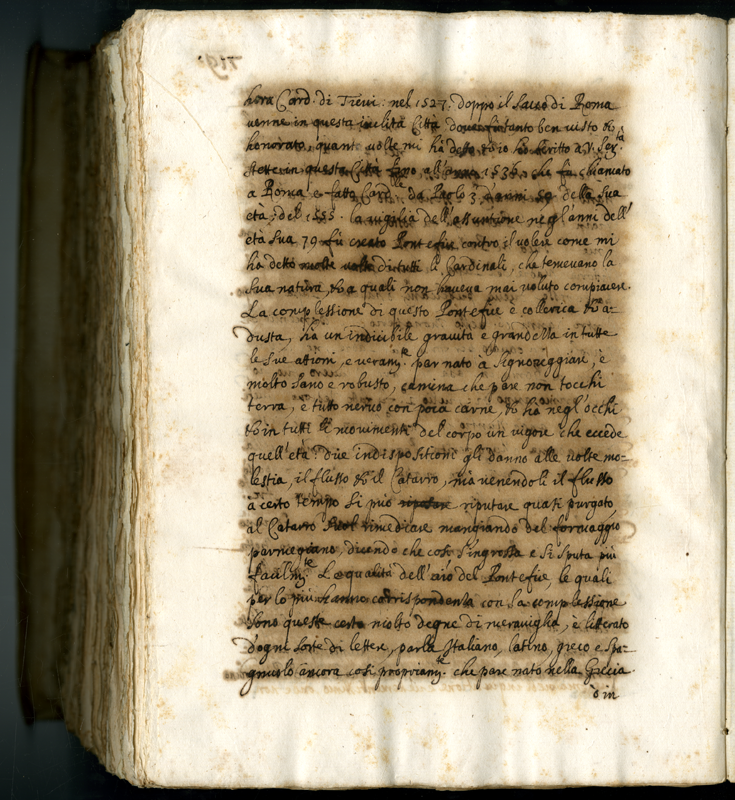 hora Card. di Trevi: nel 1527. doppo il Sacco di Roma
venne in questa inclita Città dove fu tanto ben visto &
honorato, quanto volte mi hà detto & io hò scritto a V. Ser.tà
stette in questa Città fino all'anno 1536. che fù chiamato
a Roma e fatto Card.le da Paolo 3. d'anni 59 della Sua
età; del 1555. la vigilia dell'assuntione negl'anni dell'
età Sua 79 fù creato Pontefice contro il volere come mi
hà detto molte volte di tutti li Cardinali, che temevano la
Sua natura, & a quali non haveva mai voluto compiacere.
La complessione di questo Pontefice è collerica & a-
dusta, hà un indicibile gravità e grandezza in tutte
le Sue attioni, e veram.te par nato à Signoreggiare, è
molto Sano e robusto, camina che pare non tocchi
terra, è tutto nervo con poca carne, & hà negl'occhi
& in tutti li movimenti del corpo un vigore che eccede
quell'età: due indispositioni gli danno alle volte mo-
lestia, il flusso & il Catarro, mà venendoli il flusso
à certo tempo si può riputare quasi purgato
al Catarro Suol rimediare mangiando del formaggio
parmegiano, dicendo che così S'ingrossa e Si Sputa più
facilm.te Le qualità dell'a͏͏͏͏͏͏nimo del Pontefice le quali
per lo più hanno corrispondenza con la complessione
Sono queste certo molto degne di meraviglia, è litterato
d'ogni Sorte di lettere, parla Italiano, latino, greco e Spa-
gnuolo ancora così propriam.te che pare nato nella Grecia
ò in